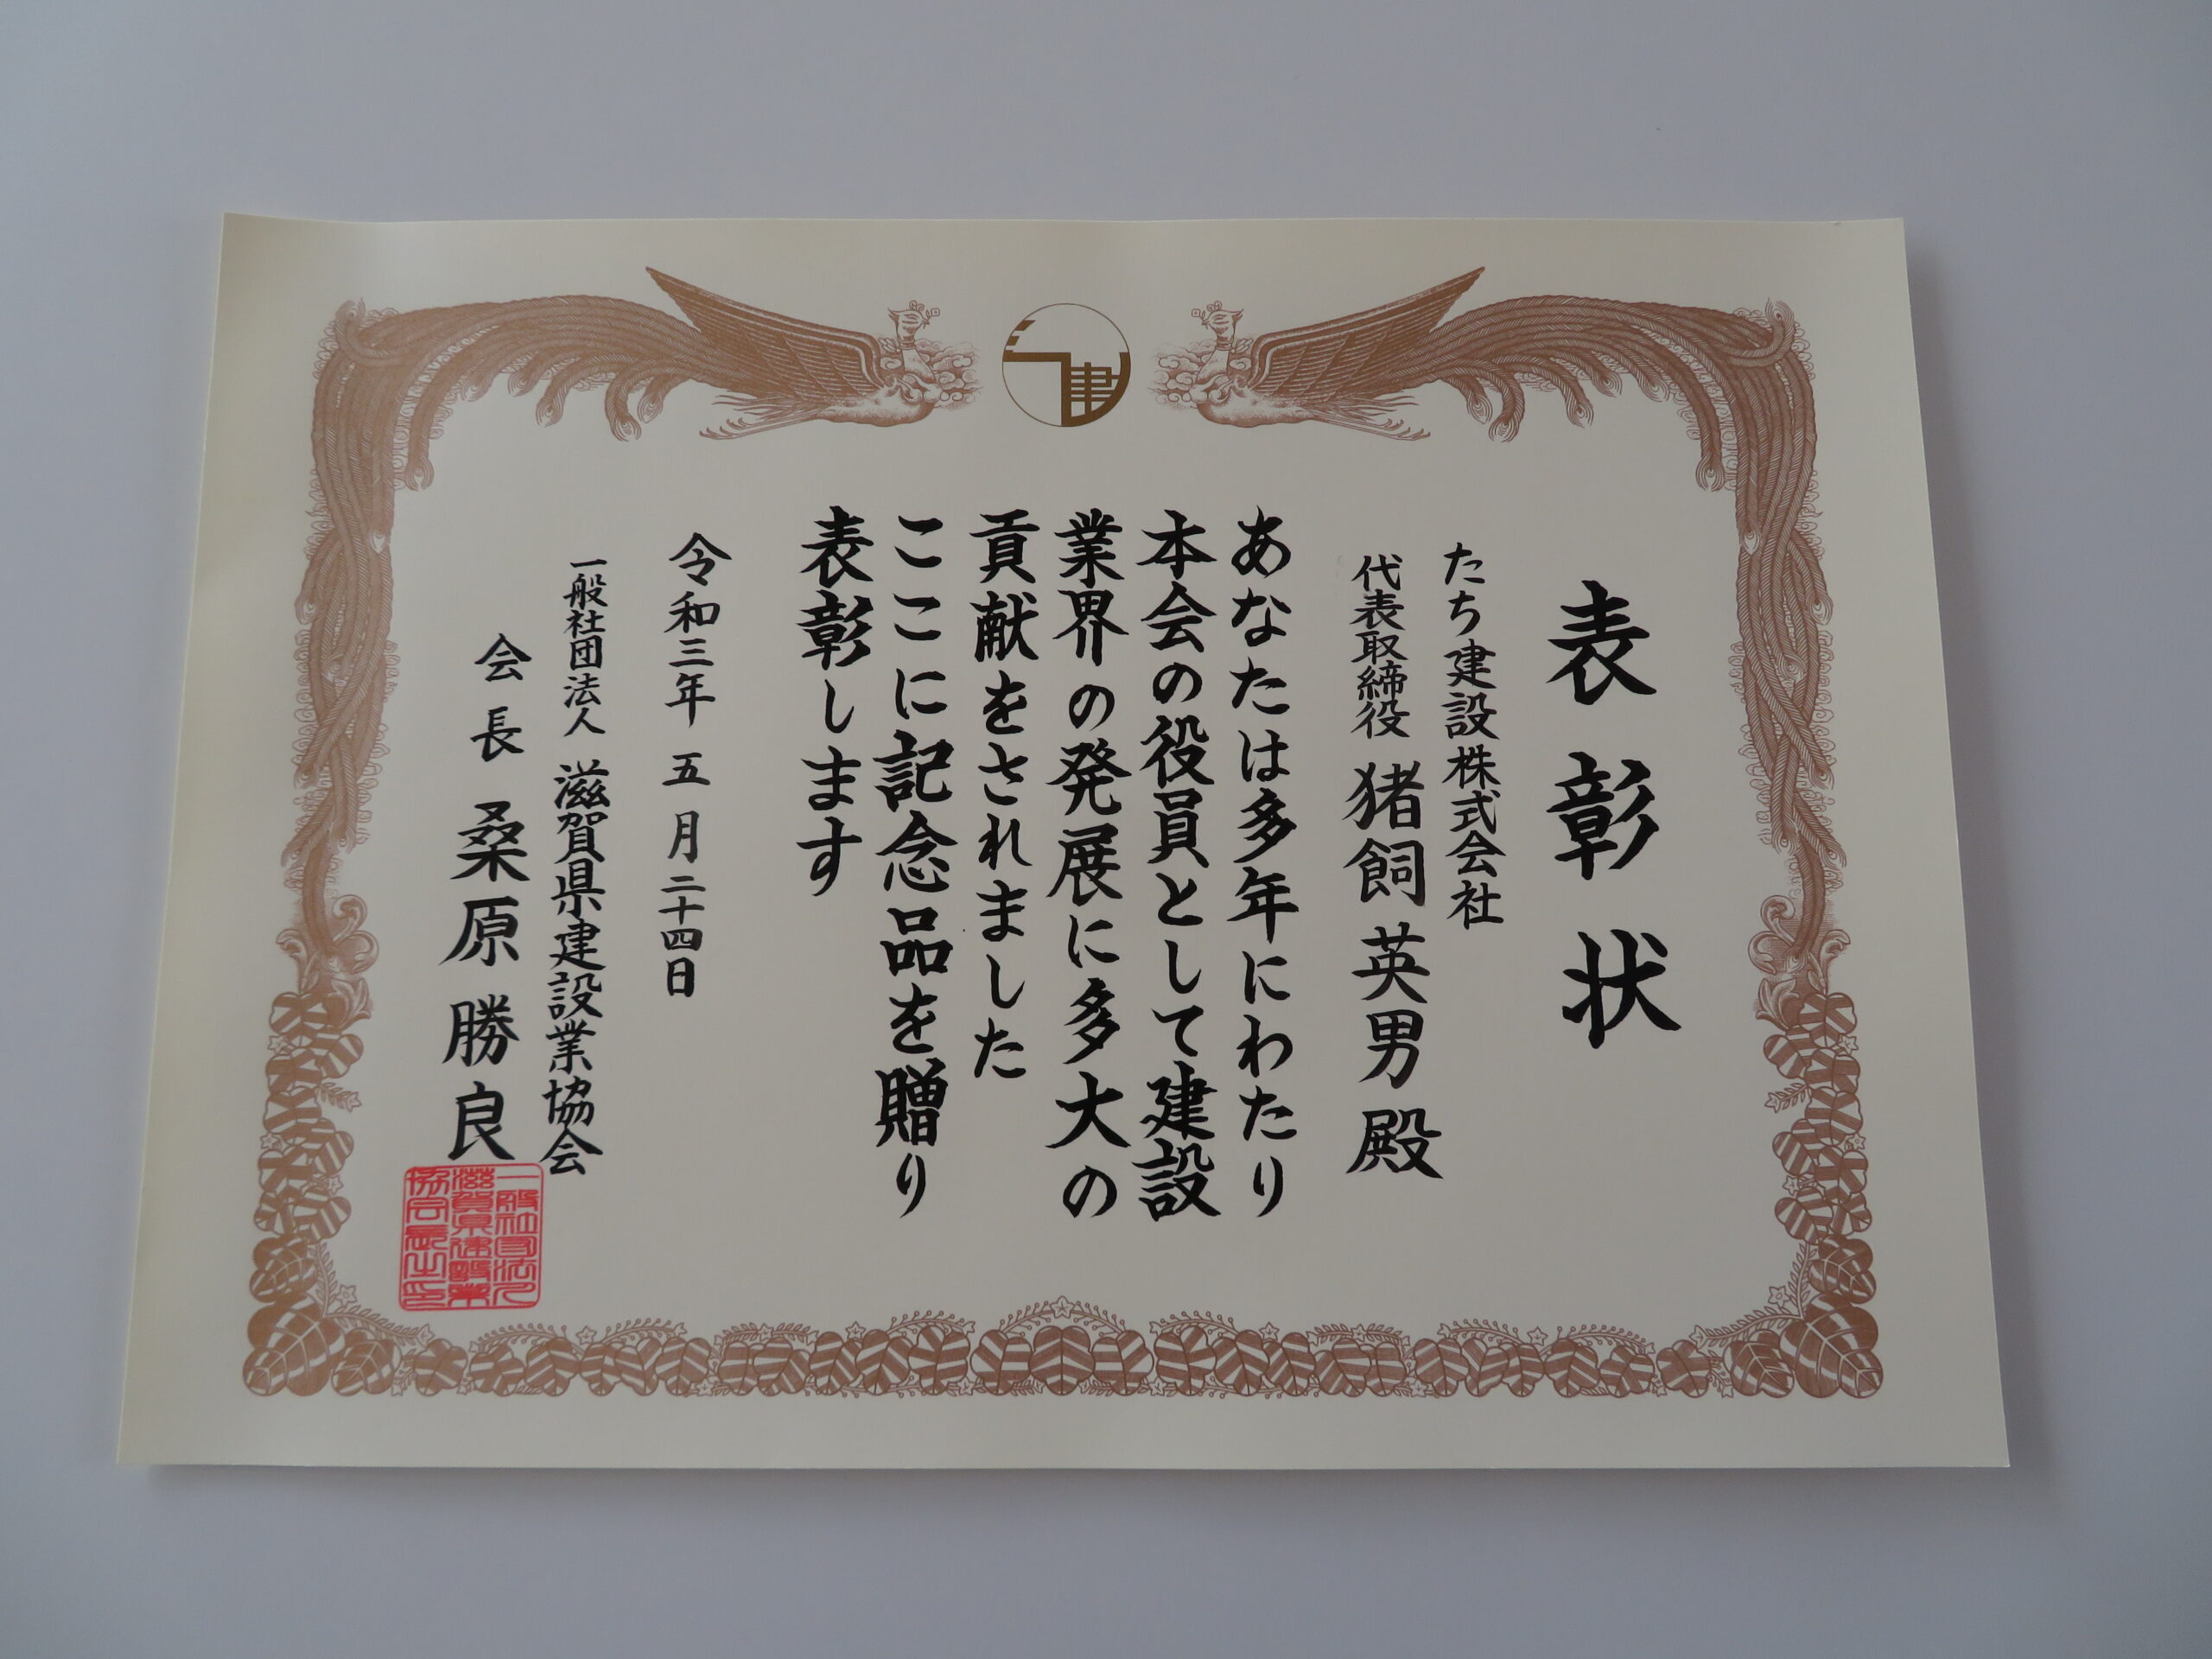 表彰状
たち建設株式会社
代表取締役 猪飼英男殿
あなたは多年にわたり
本会の役員として建設
業界の発展に多大の
貢献をされました
ここに記念品を贈り
表彰します
令和三年五月二十四日
一般社団法人 滋賀県建設業協会
会長 桑原勝良
一般社団法人
滋賀県建設業
協会長之印
建